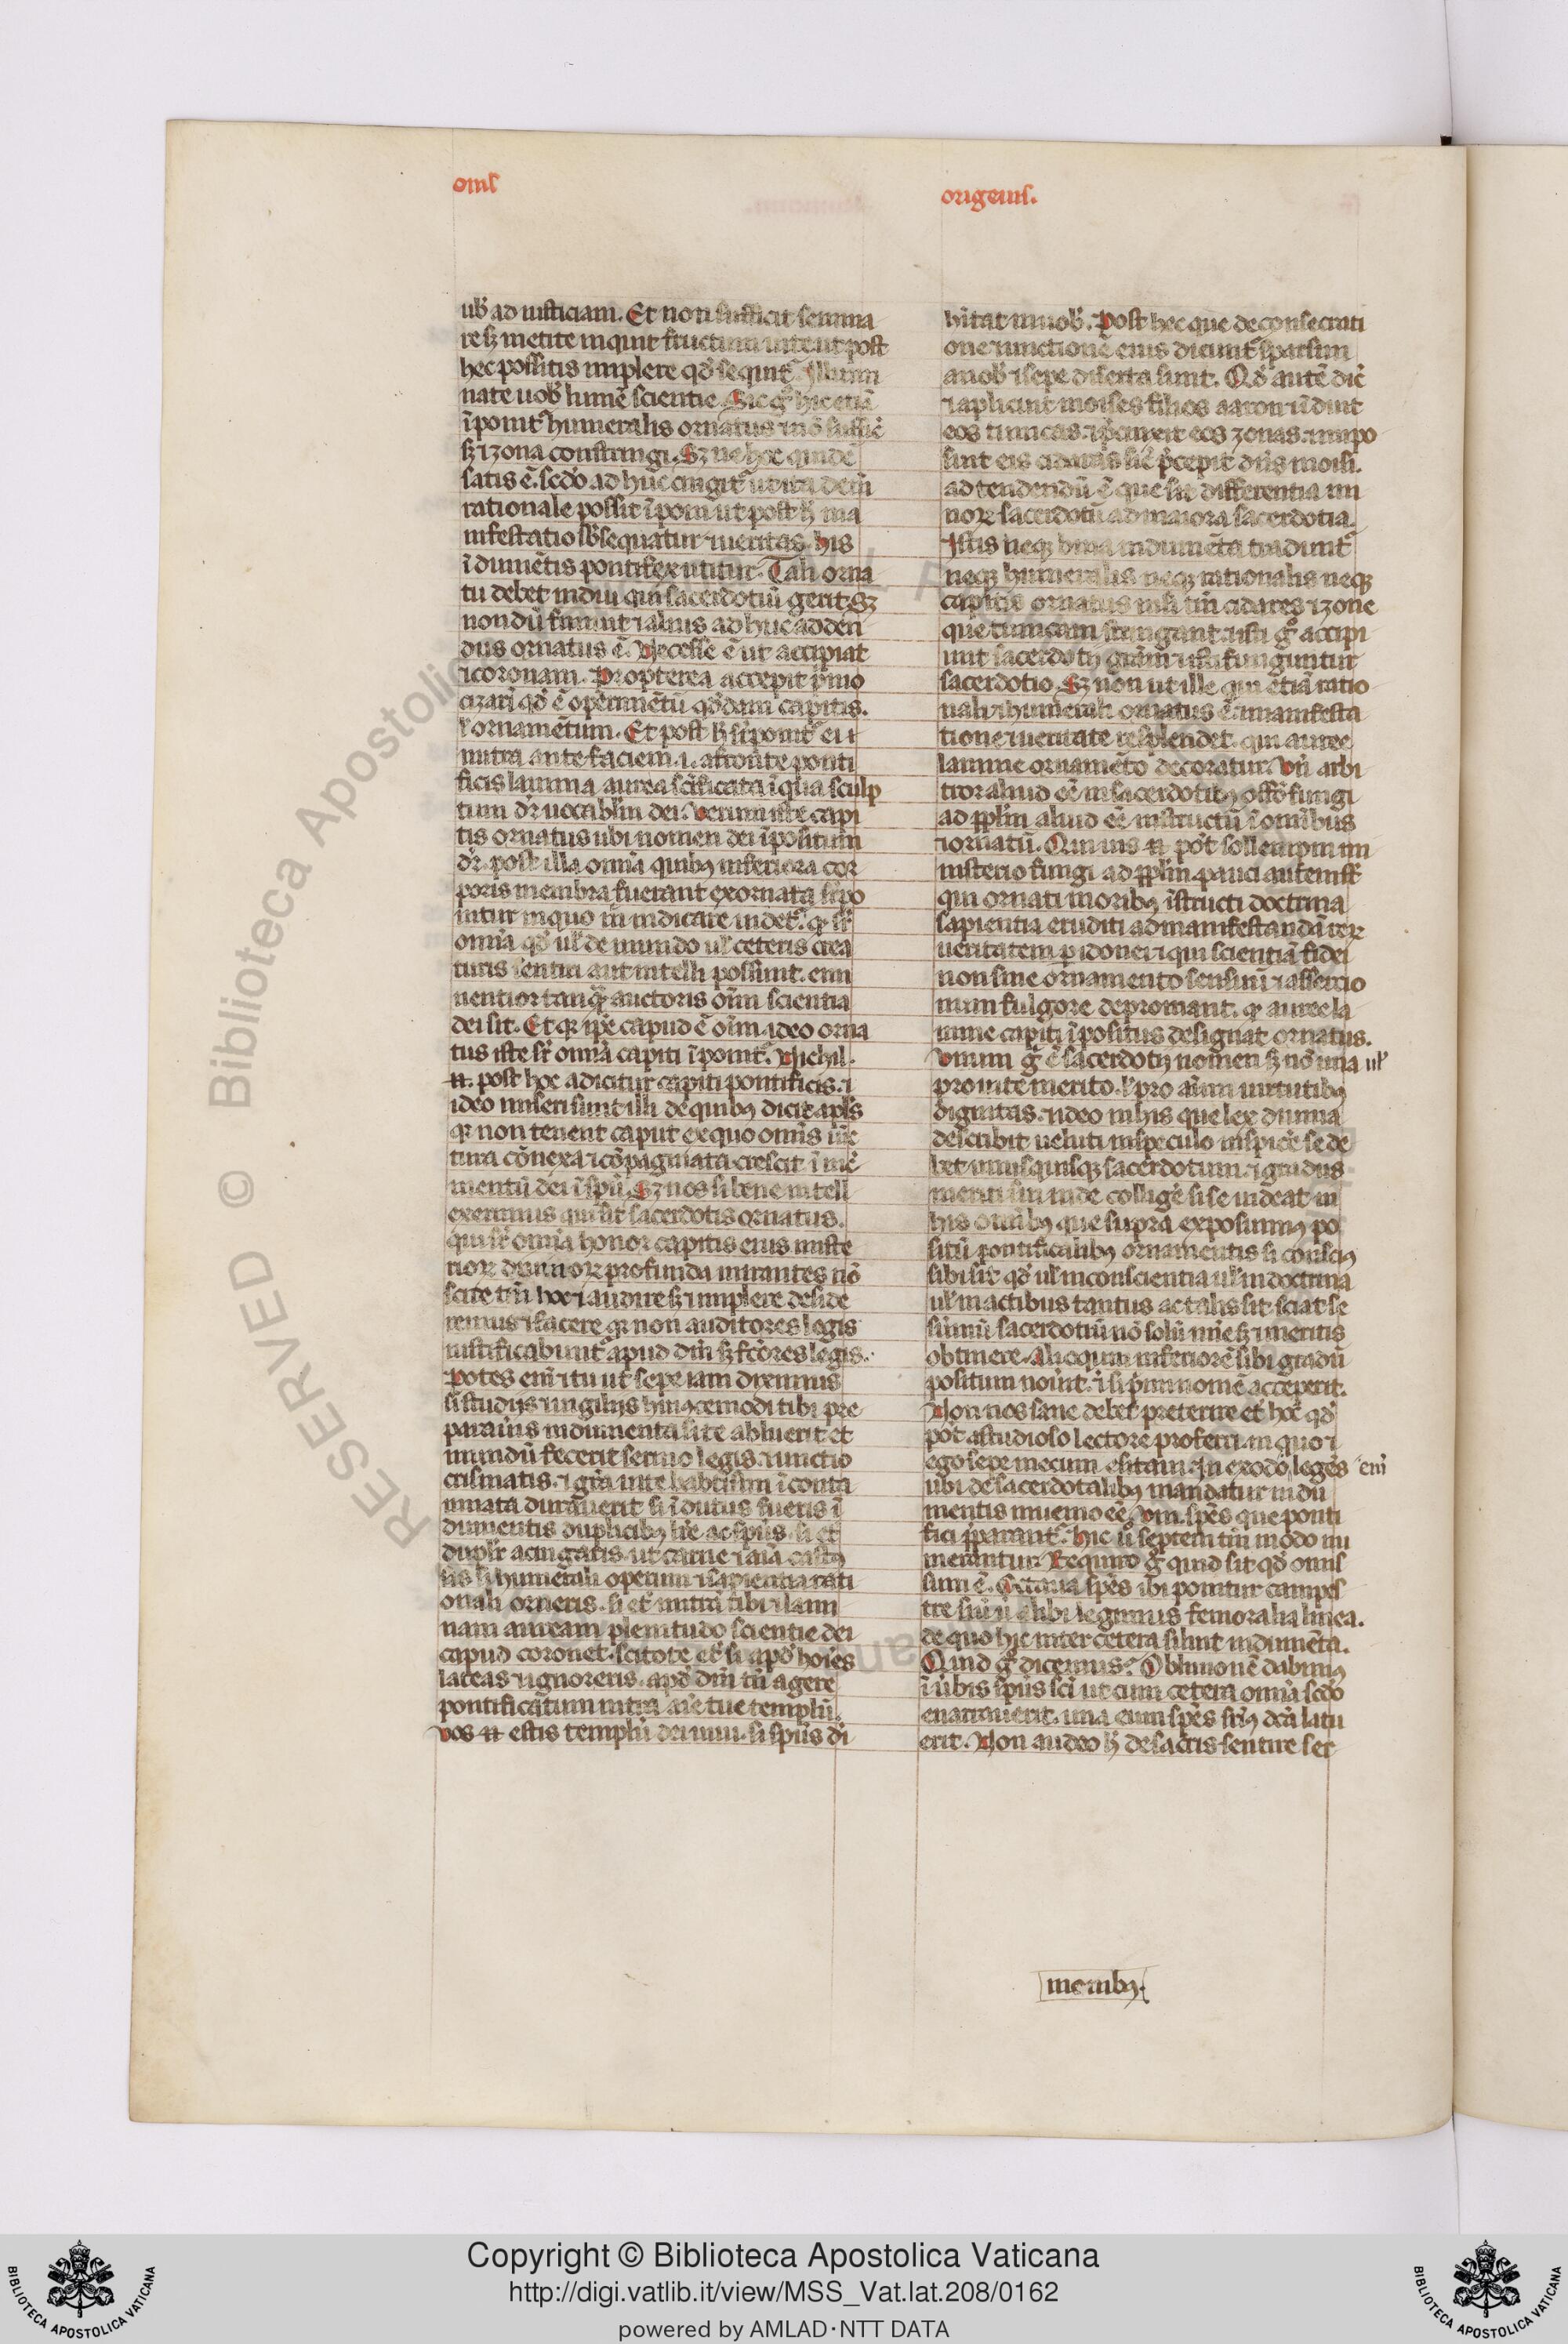 omel
origenis.
ub̄ ad iusticiam. Et non sufficit semina
re sꝫ metite inquit fructum uite ut post
hec possitis implere qd̄ sequit᷑. Illumi
nate uob̄ lumē scientie. Sic gͦ hic etiā
īponit᷑ humeralis ornatus ⁊ nō suffic̄
sꝫ ⁊ zona constringi. Sꝫ ne hoc quidē
satis ē. scdō ad huc cingit᷑ ut ita dem̄
rationale possit īponi ut post h̄ ma
nifestatio sb̄sequatur ⁊ ueritas. his
īdumētis pontifex utitur. Tali orna
tu debet indui qui sacerdotiū gerit. Sꝫ
nondū finiuit ⁊ alius ad huc adden
dus ornatus ē. Necesse ē ut accipiat
⁊ coronam. Propterea accepit p̄mo
cizari qd̄ ē operimētū qd̄dam capitis.
ł ornamētum. Et post h̄ sr̄ponit᷑ ei ⁊
mitra ante faciem .i. afronte ponti
ficis lamina aurea scīficata ī qua sculp
tum dr̄ uocablm̄ dei. Verum iste capi
tis ornatus ubi nomen dei īpositum
dr̄. post illa omīa quibꝫ inferiora cor
poris membra fuerant exornata sr̄po
nitur inquo m̄ indicare uidet᷑. qꝛ sr̄
omīa qd̄ uł de mundo uł ceteris crea
turis sentiri aut intelli possunt. emi
nentior tanqꝫ auctoris oīm scientia
dei sit. Et qꝛ ip̄e capud ē oīm ideo orna
tus iste sr̄ omīa capiti īponit᷑. Nichil.
n̄. post hoc adicitur capiti pontificis. ⁊
ideo miseri sunt illi de quibꝫ dicit apl̄s
qꝛ non tenent caput ex quo omīs iūc
tura cōnexa ⁊ cōpaginata crescit ī inc̄
mentū dei ī spū. Sꝫ nos si bene intell
exerimus qui sit sacerdotis ornatus.
qui sr̄ omīa honor capitis eius miste
rioꝝ diuinoꝝ profunda mirantes nō
scire tm̄ hoc ⁊ audire sꝫ ⁊ implere deside
remus ⁊ facere qꝛ non auditores legis
iustificabunt᷑ apud dm̄ sꝫ fctores legis.
Potes eni ⁊ tu ut sepe iam diximus
si studijs ⁊ uigilijs huiꝰcemodi tibi pre
paraūis indumenta si te abluerit et
mundū fecerit sermo legis. ⁊ unctio
crismatis. ⁊ grā inte babtismi īconta
minata durauerit si īdutus fueris ī
dumentis duplicibꝫ lr̄e ac spūs. si et
duplr̄ acingaris. ut carne ⁊ aīa castꝰ
sis si humerali operum ⁊ sapientia rati
onali orneris. si et mitrā tibi ⁊ lami
nam auream plenitudo scientie dei
capud coronet. scitote et si apd̄ hoīes
lateas ⁊ ignoreris. apd̄ dm̄ tn̄ agere
pontificatum intra aīe tue templū.
Vos n̄ estis templū dei uiui. si spūs dī
habitat in uob̄. Post hec que de consecrati
one ⁊ unctionē eius dicunt᷑ sparsim
auob̄ ⁊ sepe diserta sunt. Qd̄ autē dic̄
⁊ aplicuit moises filios aaron ⁊ īduit
eos tunicas. ⁊ p̄cinxit eos zonas. ⁊ impo
suit eis cidaras sic̄ p̄cepit dn̄s moisi.
adtendendū ē que sit differentia mi
noꝝ sacerdotū ad maiora sacerdotia.
Istis neqꝫ bina indumēta tradunt᷑
neqꝫ humeralis neqꝫ rationalis neqꝫ
capitis ornatus nisi tm̄ cidares ⁊ zone
que tunicam stringant. isti gͦ accipi
unt sacerdotij grām ⁊ isti funguntur
sacerdotio. Sꝫ non ut ille qui etiā ratio
nali ⁊ humerali ornatus ē. ⁊ manifesta
tione ⁊ ueritate resplendet. qui auree
lamine ornamēto decoratur. Vn̄ arbi
tror aliud eē in sacerdotibꝫ offō fungi
ad pplm̄ aliud eē instructū ī omībus
⁊ ornatū. Quiuis n̄ pōt sollempni mi
nisterio fungi ad pplm̄. pauci autem st̄
qui ornati moribꝫ īstructi doctrina
sapientia eruditi ad manifestandā reꝝ
ueritatem p idonei ⁊ qui scientiā fidei
non sine ornamento sensuū ⁊ assertio
num fulgore depromant. qꝛ auree la
mine capiti īpositus designat ornatus.
Vnum gͦ ē sacerdotij nomen sꝫ nō una uł
pro uite merito. ł pro aīmi uirtutibꝫ
dignitas. ⁊ ideo in his que lex diuina
describit ueluti in speculo inspic̄e se de
bet unusquisqꝫ sacerdotum. ⁊ gradus
meriti sui inde collige si se uideat in
his omībꝫ que supra exposuimꝰ po
situ pontificalibꝫ ornamentis si consciꝰ
sibi sit qd̄ uł in conscientia uł in doctrina
uł in actibus tantus ac talis sit sciat se
sūmū sacerdotiū nō solū noīe sꝫ ⁊ meritis
obtinere. Alioquin inferiorē sibi gradū
positum nouit. ⁊ si p̄mi nomē acceperit.
Non nos sane debet preterire et hoc̄ qd̄
pōt astudioso lectore proferri. in quo ⁊
ego sepe mecum. esitaui. In exodo legēs enī
ubi de sacerdotalibꝫ mandatur indu
mentis inuenio eē. Viii. spēs que ponti
fici pparant᷑. hic ū septem tm̄ modo nu
merantur. Requiro gͦ quid sit qd̄ omis
sum ē. Octaua spēs ibi ponitur campes
tre siū ū alibi legimus femoralia linea.
de quo hic inter cetera siluit indumēta.
Quid gͦ dicemus? Obliuionē dabimꝰ
ī ūbis spūs sci ut cum cetera omīa scdō
enarrauerit. una eum spēs sr̄iꝰ dcā latu
erit. Non audeo h̄ de sacris sentire ser
monibꝫ.
Copyright © Biblioteca Apostolica Vaticana
http://digi.vatlib.it/view/MSS_Vat.lat.208/0162
powered by AMLAD·NTT DATA